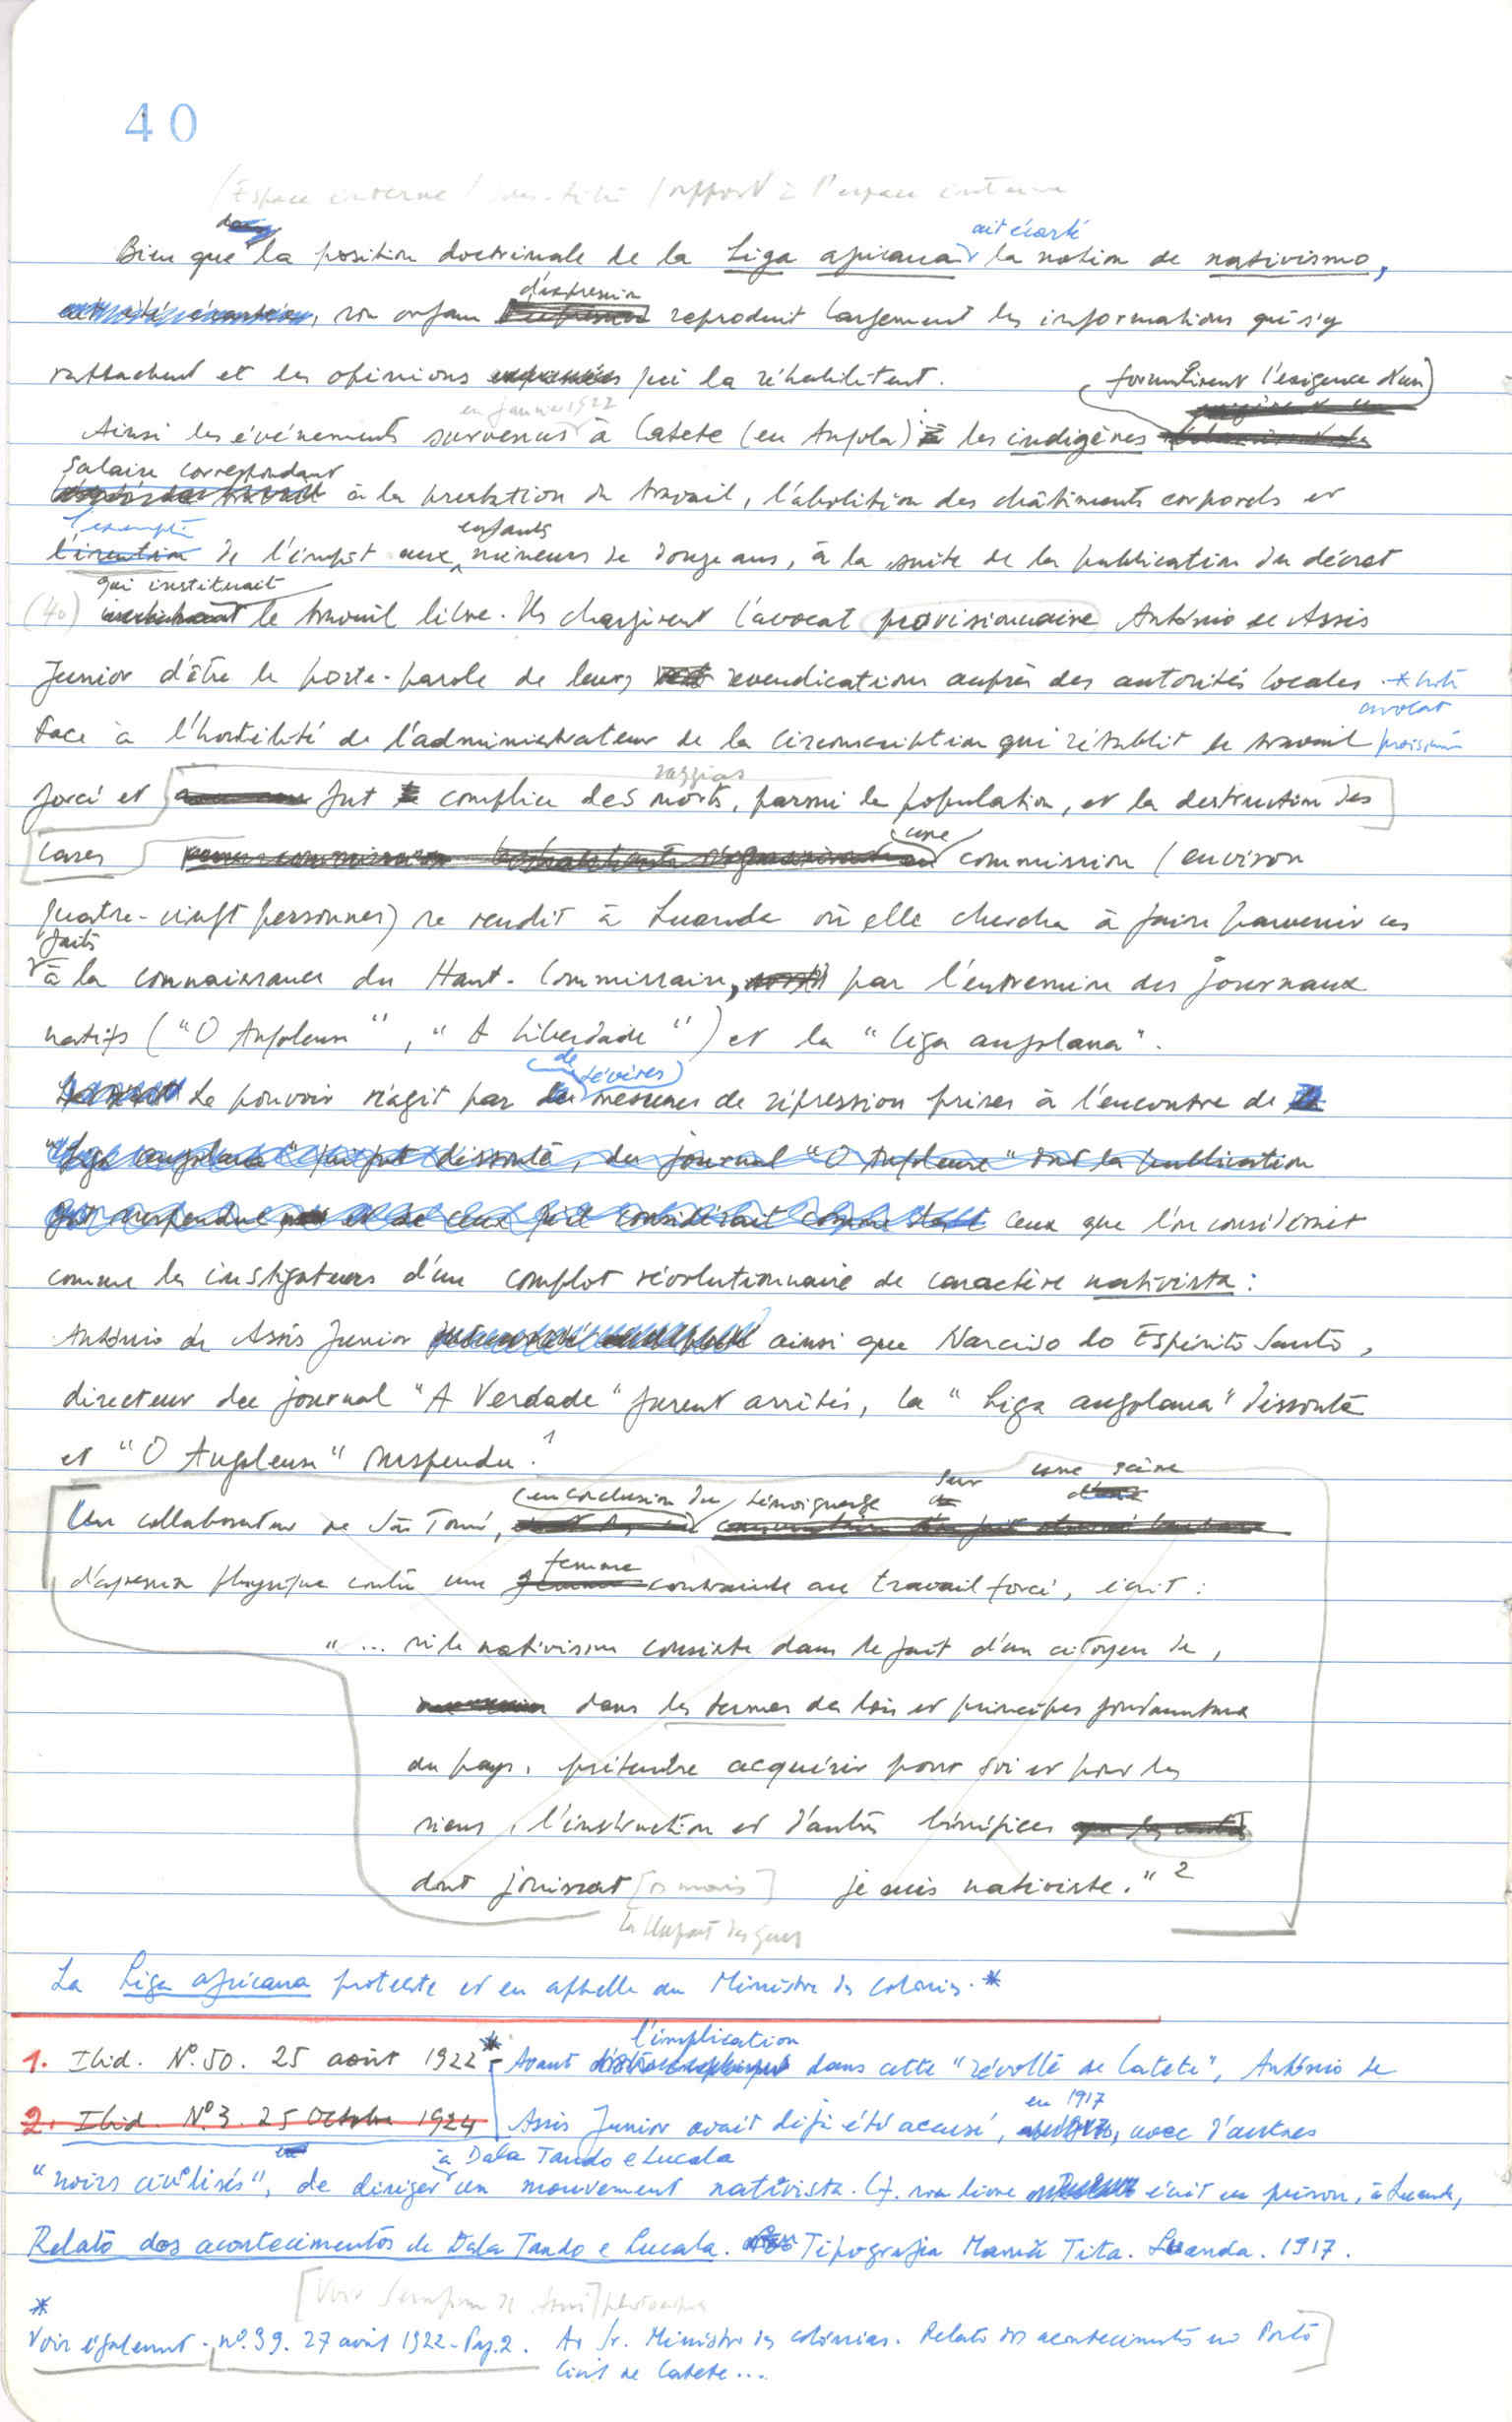 40
Bien que la position doctrinale de la Liga africana ait écarté la notion de nativismo,
son organe d'expression reproduit largement les informations qui s'y
rattachent et les opinions qui la réhabilitent.
Ainsi les événements survenus en janvier 1922 à Catete (en Angola) : les indigènes formulèrent l'exigence d'un
salaire correspondant à la prestation du travail, l'abolition des châtiments corporels et
l'exemption de l'impôt aux enfants mineurs de douze ans, à la suite de la publication du décret
(40) qui instituait le travail libre. Ils chargèrent l'avocat provisionnaire António de Assis
Junior d'être le porte-parole de leurs revendications auprès des autorités locales. *
avocat
Face à l'hostilité de l'administrateur de la circonscription qui rétablit le travail
forcé et fut complice des razzias morts, parmi la population, et la destruction des
cases une commission (environ
quatre-vingt personnes) se rendit à Luanda où elle chercha à faire parvenir ces
faits à la connaissance du Haut-Commissaire, par l'entremise des journaux
natifs ("O Angolense", "A Liberdade") et la "Liga angolana".
Le pouvoir réagit par de sévères mesures de répression prises à l'encontre de
"Liga angolana" qui fut dissoute, du journal "O Angolense" dont la publication
fut suspendue et de ceux qu'il considérait comme ceux que l'on considérait
comme les instigateurs d'un complot révolutionnaire de caractère nativista :
António de Assis Junior ainsi que Narciso do Espírito Santo,
directeur du journal "A Verdade" furent arrêtés, la "Liga angolana" dissoute
et "O Angolense" suspendu.1
Un collaborateur de São Tomé, en conclusion du témoignage sur une scène
d'agression physique contre une femme contrainte au travail forcé, écrit :
"... si le nativisme consiste dans le fait d'un citoyen de,
dans les termes des lois et principes fondamentaux
du pays, prétendre acquérir pour soi et pour les
siens, l'instruction et d'autres bénéfices
dont jouissent [os mais] je suis nativiste." 2
la plupart des gens
La Liga africana proteste et en appelle au Ministre des Colonies. *
1. Ibid. Nº. 50. 25 août 1922
* Avant l'implication dans cette "révolte de Catete", António de
2. Ibid. Nº 3. 25 Octobre 1924
Assis Junior avait déjà été accusé, en 1917, avec d'autres
"noirs civilisés", de diriger à Dala Tando e Lucala un mouvement nativista. Cf. son livre écrit en prison, à Luanda,
Relato dos acontecimentos de Dala Tando e Lucala. Tipografia Mamã Tita. Luanda. 1917.
*
Voir également. nº. 39. 27 août 1922 - Pag. 2. Ao Sr. Ministro das colónias. Relato dos acontecimentos no Posto
Civil de Catete...